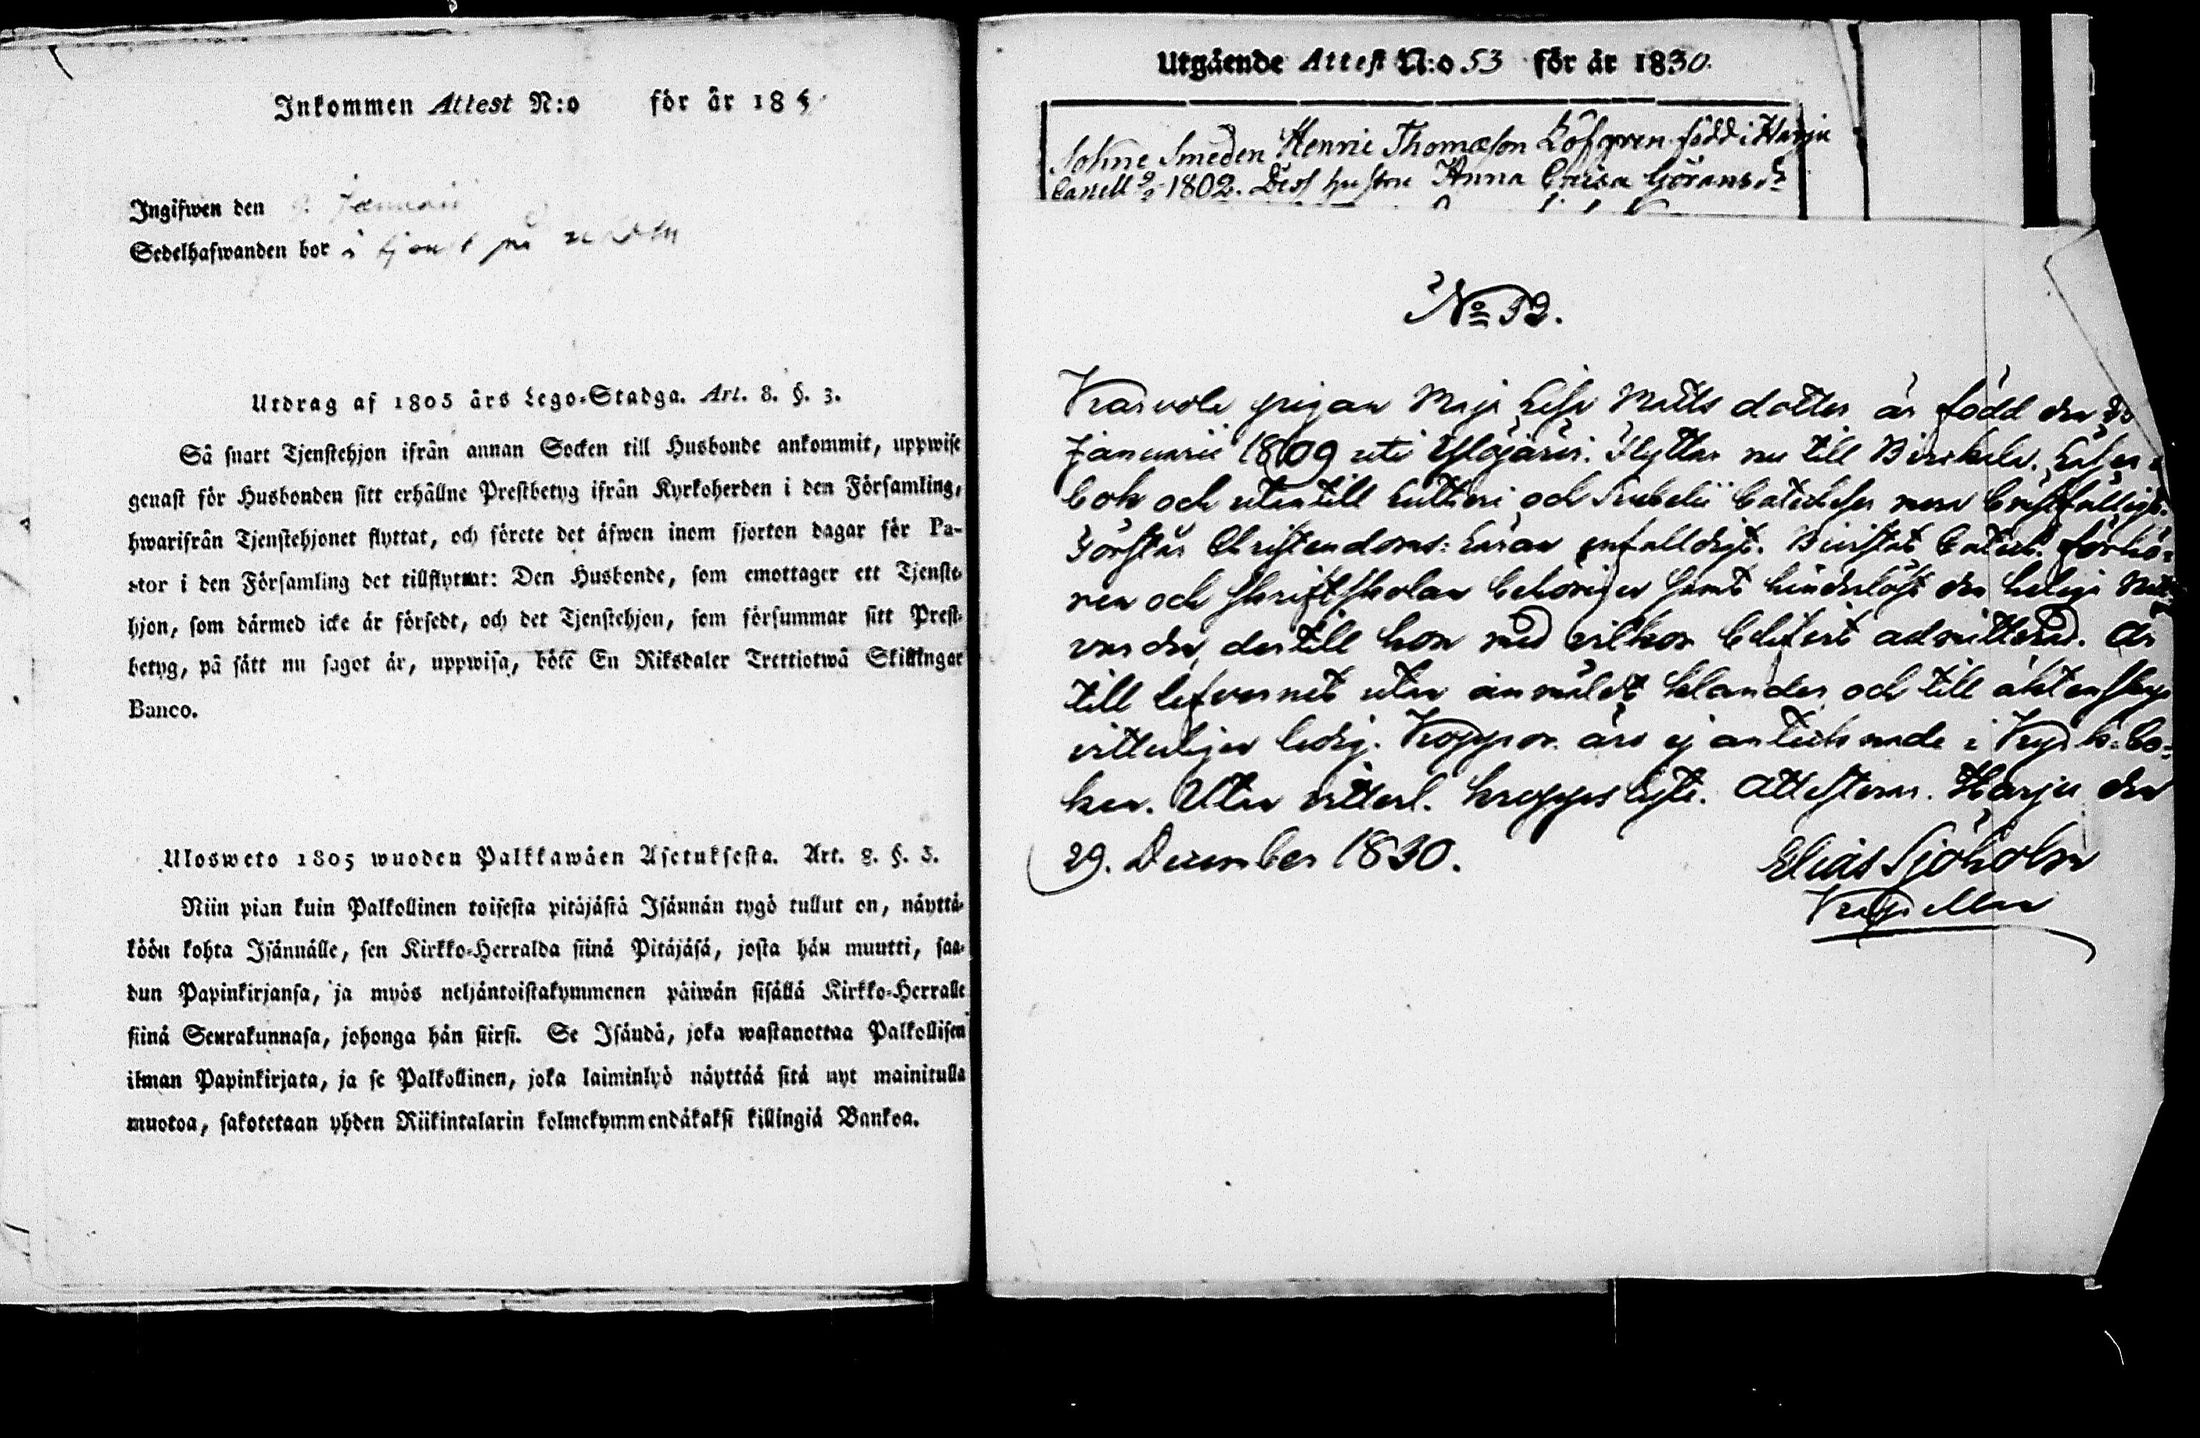 Inkommen Attest N:o för år 18
Ingifwen den Januari
Sedelhafwanden bor i tjenst på
Utdrag af 1805 års Lego-Stadga. Art. 8. §. 3.
Så snart Tjenstehjon ifrån annan Socken till Husbonde ankommit, uppwise
genast för Husbonden sitt erhållne Prestbetyg ifrån Kyrkoherden i den Församling,
hwarifrån Tjenstehjonet flyttat, och förete det äfwen inom fjorton dagar för Pa-
stor i den Församling det tillflyttat: Den Husbonde, som emottager ett Tjenste-
hjon, som därmed icke är försedt, och det Tjenstehjon, som försummar sitt Prest-
betyg, på sätt nu sagot är, uppwisa, böte En Riksdaler Trettiotwå Skillingar
Banco.
Ulosweto 1805 wuoden Palkkawäen Asetuksesta. Art. 8. §. 3.
Niin pian kuin Palkollinen toisesta pitäjästä Isännän tygö tullut on, näyttä-
köön kohta Isännälle, sen Kirkko-Herralda siinä Pitäjäsä, josta hän muutti, saa-
dun Papinkirjansa, ja myös neljäntoistakymmenen päiwän sisällä Kirkko-Herralle
siinä Seurakunnasa, johonga hän siirsi. Se Isändä, joka wastanottaa Palkollisen
ilman Papinkirjata, ja se Palkollinen, joka laiminlyö näyttää sitä nyt mainitulla
muotoa, sakotetaan yhden Riikintalarin kolmekymmendäkaksi killingiä Bankoa.
Utgående Attest N:o 53 för år 1830.
Sohne Smeden Henric Thomasson Löfgren född i Harju
Capell 1802. Dess hustru Anna Caisa Göransdr
No 52.
pigan Maja Lisa Matts dotter är född den
Januarii 1809 uti Ylöjärvi. Flyttar nu till Birckala. Läser i
bok och utantill Lutheri och Svebelii Catecheser men bristfälligt.
Förstår Christendoms-Läran enfalldigt. Bivistat Catech. förhö-
ren och Skriftskolan behörigen samt hinderlöst den heliga Natt-
varden, der till hon med vilkor blifvit admitterad. Är
till lefvernet utan anmäldt klander och till äktenskap
vitterligen ledig. Koppor äro ej antecknade i Kyrko-bo-
ken. Utan vitterl. kroppslyte. Attesterar. Harju den
29. December 1830.
Elias Sjöholm
Kapellan